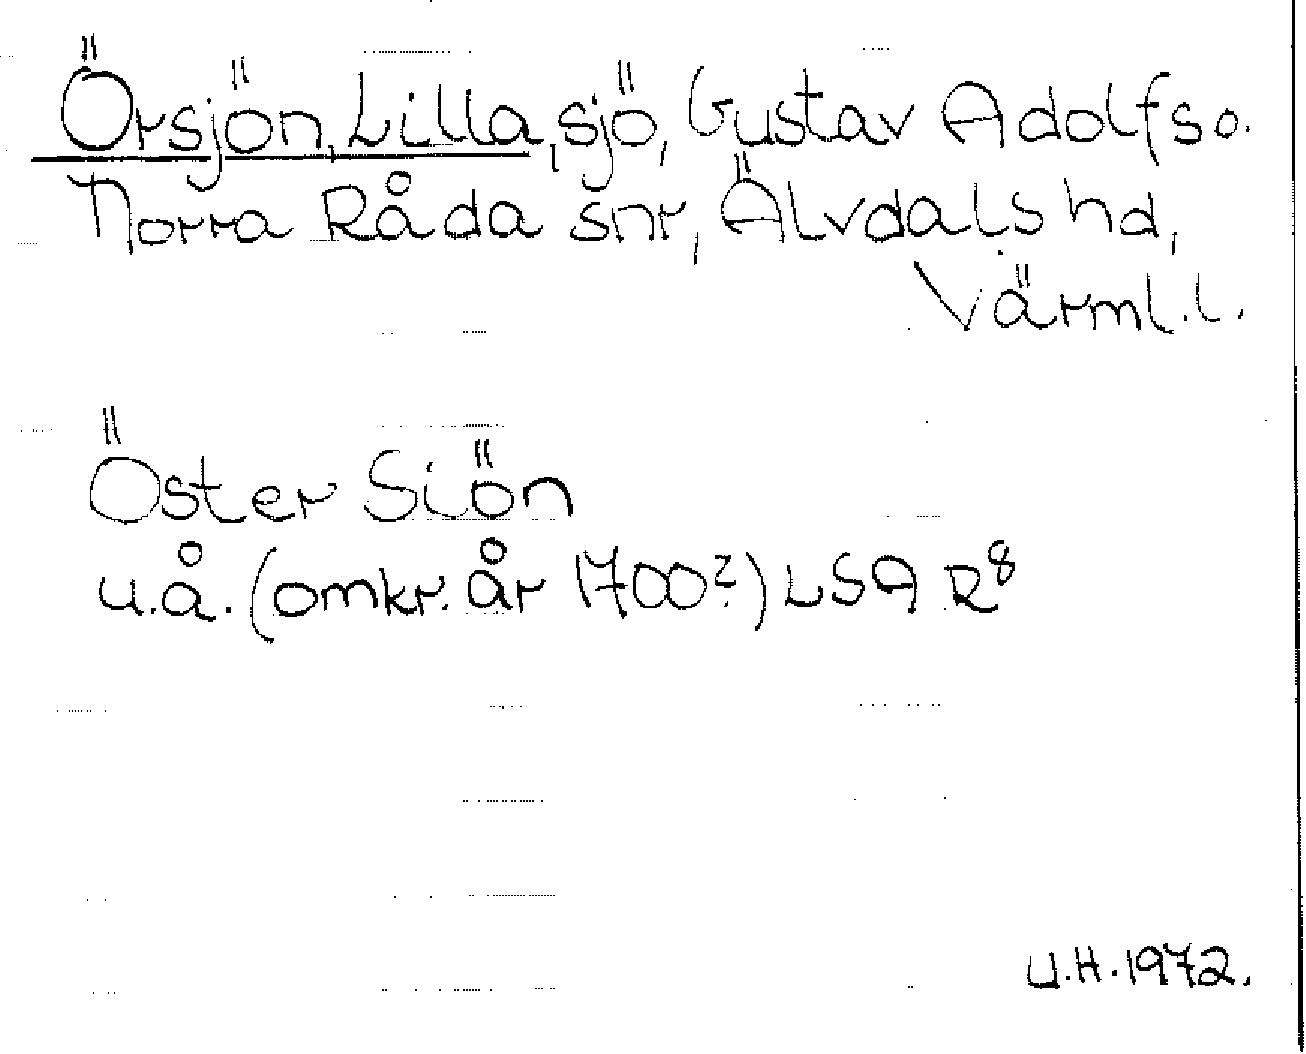 Örsjön, Lilla, sjö, Gustav Adolfs o.
Norra Råda snr, Älvdals hd,
Värml. l.
Öster Siön
u.å. (omkr. år 1700?) LSA R8
U.H. 1972.